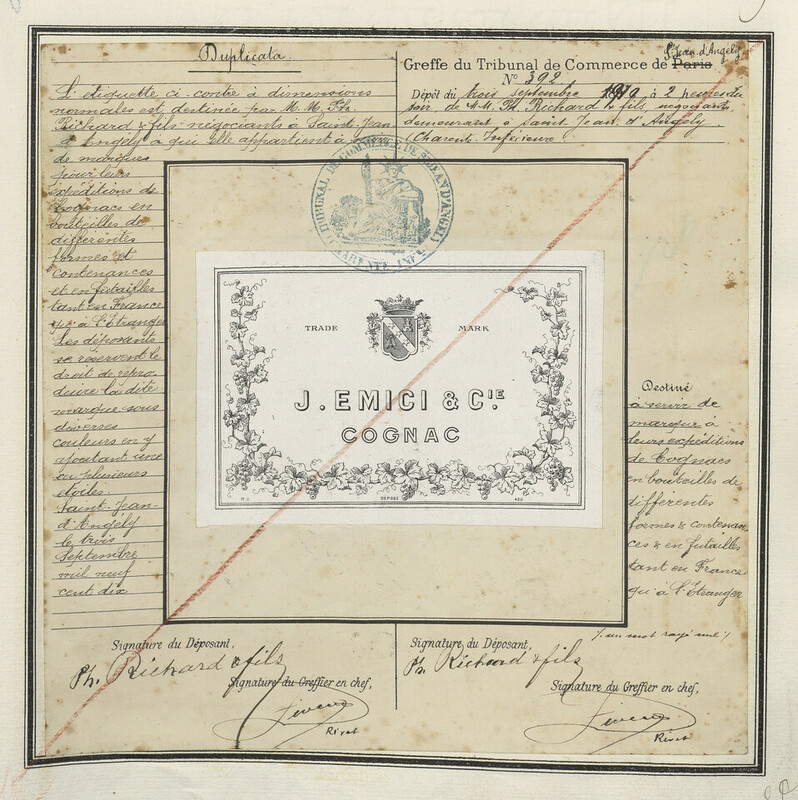 Duplicata.
L'étiquette ci-contre à dimensions
normales est destinée par M. M. Ph.
Richard & fils négociants à Saint-Jean
d'Angély à qui elle appartient à servir
de marques
pour leurs
expéditions de
Cognacs en
bouteilles de
différentes
formes et
contenances
et en futailles
tant en France
qu'à l'Etranger
Les déposants
se réservent le
droit de repro
duire la dite
marque sous
diverses
couleurs en y
ajoutant une
ou plusieurs
étoiles.
Saint-Jean-
d'Angély
le trois
Septembre
mil neuf
cent dix
St Jean d'Angély
Greffe du Tribunal de Commerce de Paris
No 392
Dépôt du trois septembre 1910 à 2 heures du
soir de M.M. Ph. Richard & fils négociants
demeurant à Saint Jean d'Angély
(Charente Inférieure.
TRIBUNAL DE COMMERCE DE St JEAN D'ANGELY
CHARENTE INFre
TRADE MARK
J. EMICI & CIE
COGNAC
DÉPOSÉ
Destiné
à servir de
marque à
leurs expéditions
de Cognacs
en bouteilles de
différentes
formes & contenan
ces & en futailles
tant en France
qu'à l'Etranger
/. un mot rayé nul ./.
Signature du Déposant,
Ph. Richard & fils
Signature du Greffier en chef,
Rivet
Signature du Déposant,
Ph. Richard & fils
Signature du Greffier en chef,
Rivet